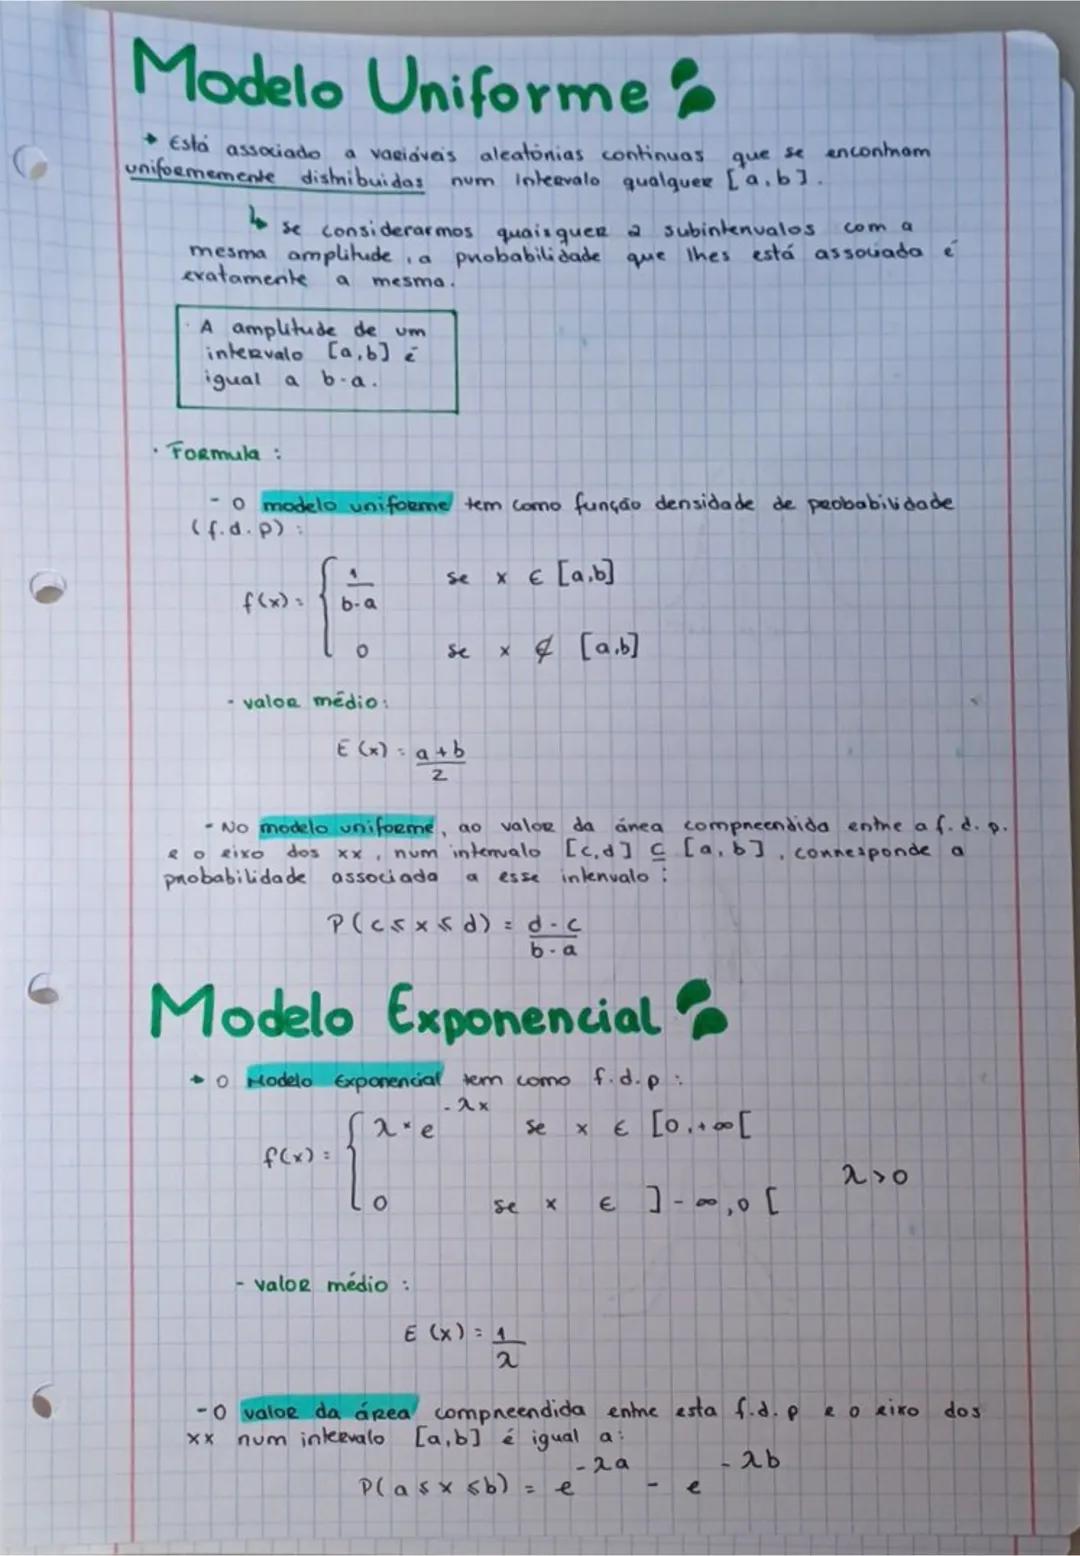 Modelo Uniforme
→ Está associado a variáveis aleatórias continuas que se encontram
uniformemente distribuidas num intervalo qualquer [a,b].
↳ se considerarmos quaisquer 2 subintervalos com a
mesma amplitude, a probabilidade que lhes está associada é
exatamente a mesma.
· A amplitude de um
intervalo [a,b] é
igual a b-a.
· Formula :
- O modelo uniforme tem como função densidade de probabilidade
(f.d.p) :
f(x) = { 1/(b-a) se x ∈ [a,b]
0 se x ∉ [a,b]
- valor médio:
E(x) = (a+b)/2
- No modelo uniforme, ao valor da área compreendida entre a f.d.p.
e o eixo dos xx, num intervalo [c,d] ⊆ [a,b], corresponde a
probabilidade associada a esse intervalo :
P(c ≤ x ≤ d) = (d-c)/(b-a)
Modelo Exponencial
→ O Modelo Exponencial tem como f.d.p :
f(x) = { λ × e^(-λx) se x ∈ [0,+∞[
0 se x ∈ ]-∞,0[ λ>0
- valor médio :
E(x) = 1/λ
- O valor da área compreendida entre esta f.d.p e o eixo dos
xx num intervalo [a,b] é igual a:
P(a ≤ x ≤ b) = e^(-λa) - e^(-λb)